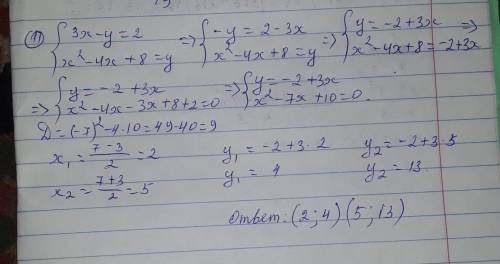 19
① { 3x-y=2 => { -y=2-3x => { y=-2+3x =>
{ x²-4x+8=y { x²-4x+8=y { x²-4x+8=-2+3x
=> { y=-2+3x => { y=-2+3x
{ x²-4x-3x+8+2=0 { x²-7x+10=0.
D=(-7)²-4·10=49-40=9
x₁=(7-3)/2=2 y₁=-2+3·2 y₂=-2+3·5
x₂=(7+3)/2=5 y₁=4 y₂=13
Ответ: (2;4)(5;13)